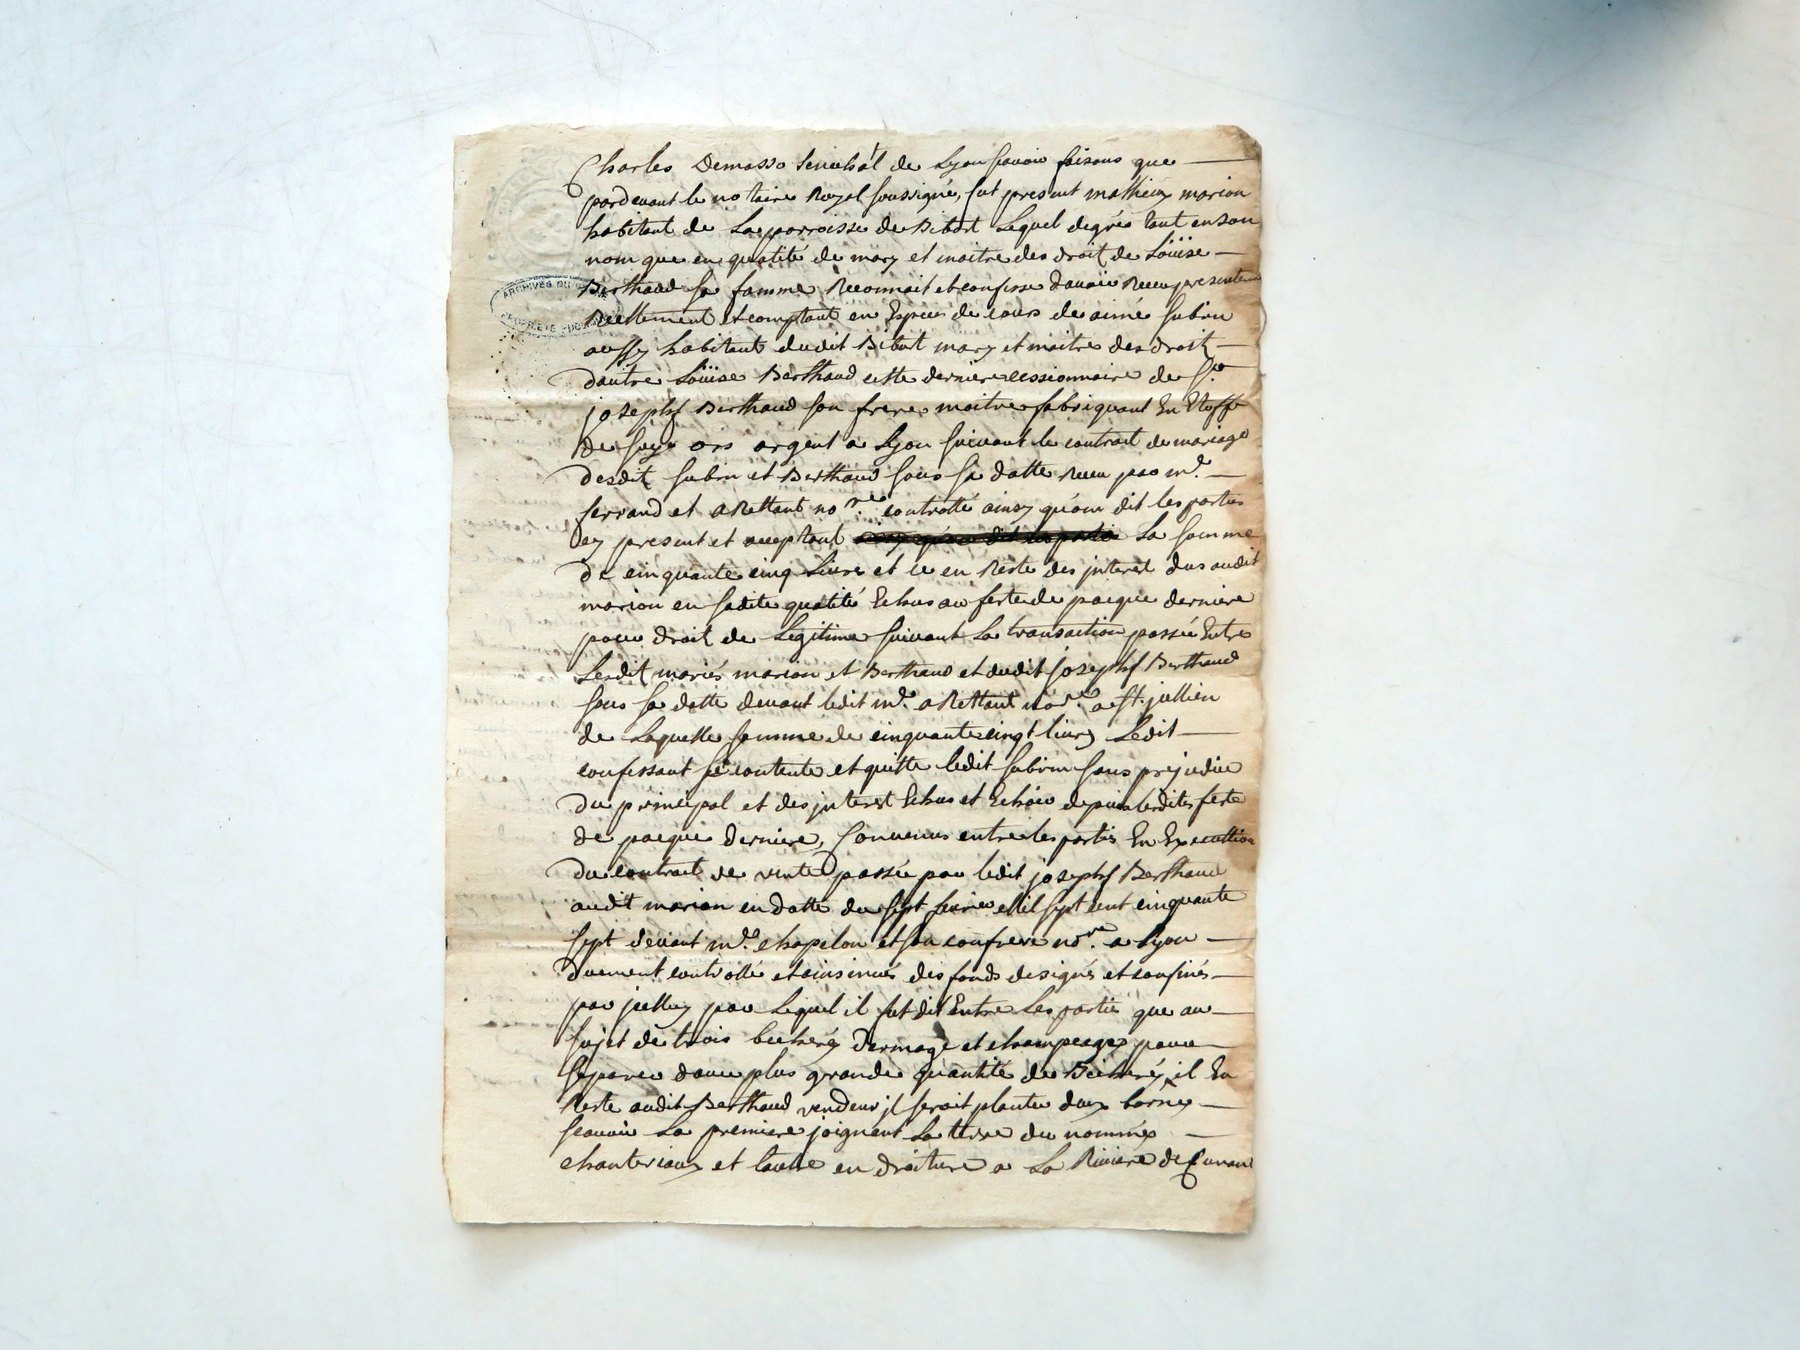 Charles Demasso Senechal de Lyon savoir faisons que
pardevant le notaire Royal soussigné, fut present mathieux marion
habitant de La parroisse de Bibost Lequel degrés tant en son
nom que en qualité de mary et maitre des droit de Loüise
Berthaud sa famme, Reconnait et confesse davoir Receu presentem
Reellement et comptant en Especes de cours de aimé subrin
aussy habitant dudit Bibost mary et maitre des droit
dautre Loüise Berthaud cette derniere cessionnaire de Sr
josephf Berthaud son frere maitre fabriquant En Etoffe
de soye ors argent a Lyon suivant le contrait de mariage
desdit subrin et Berthaud sous sa datte Receu par me
ferrand et a Rettant nore controllé ainsy quom dit les parties
cy present et acceptant La somme
de cinquante cinq Livres et ce en Reste des jnterest dus audit
marion en sadite qualité Echus au feste de pacque derniere
pour droit de Legitime suivant La transaction passée Entre
Lesdit mariés marion et Berthaud et dudit josephf Berthaud
sous sa datte devant ledit me a Rettant nore a st. jullien
de Laquelle somme de cinquante cinqt livres Ledit
confessant se contente et quitte ledit subrin sans prejudice
du principal et des jnterest Echus et Echoir depuis lesdites feste
de pacque derniere, Convenus entre les partis En Executtion
du contrait de vente passée par ledit josephf Berthaud
audit marion en datte du sept fevrier Mil sept cent cinquante
sept devant me. chapelon et son confrere nore. a Lyon
duement controllé et insinué des fonds designés et confinés
par jcelluy par Lequel il fut dit Entre Les partie que au
sujet de trois bicheréz dermage et champeage pour
separer dauec plus grande quantité de Bicheréz il En
Reste audit Berthaud vendeur jl seroit planté deux bornes
scauoir La premiere joignant La terre du nommé
chanteriaux et lautre en droiture a La Riviere de
ARCHIVES DU